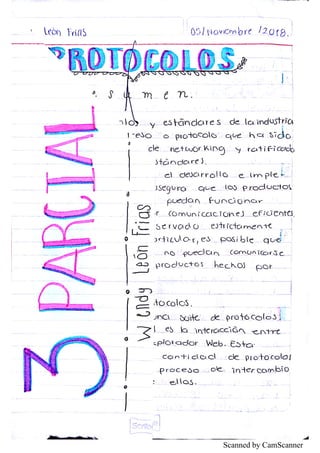 León Frias 05/Noviembre/2018.
PROTOCOLOS
r e s u m e n.
y estándares de la industria
o protocolo que ha sido
de networking y ratificado
stándares).
el desarrollo e imple
seguro que los productos
puedan funcionar
comunicaciones eficientes
servado estrictamente
rticular, es posible que
no puedan comunicarse
productos hechos por
tocolos.
una suite de protocolos
es la interacción entre
xplorador Web. Esta
cantidad de protocolos
proceso de intercambio
ellos.
3 PARCIAL
Wendy León Frias
Scanned by CamScanner